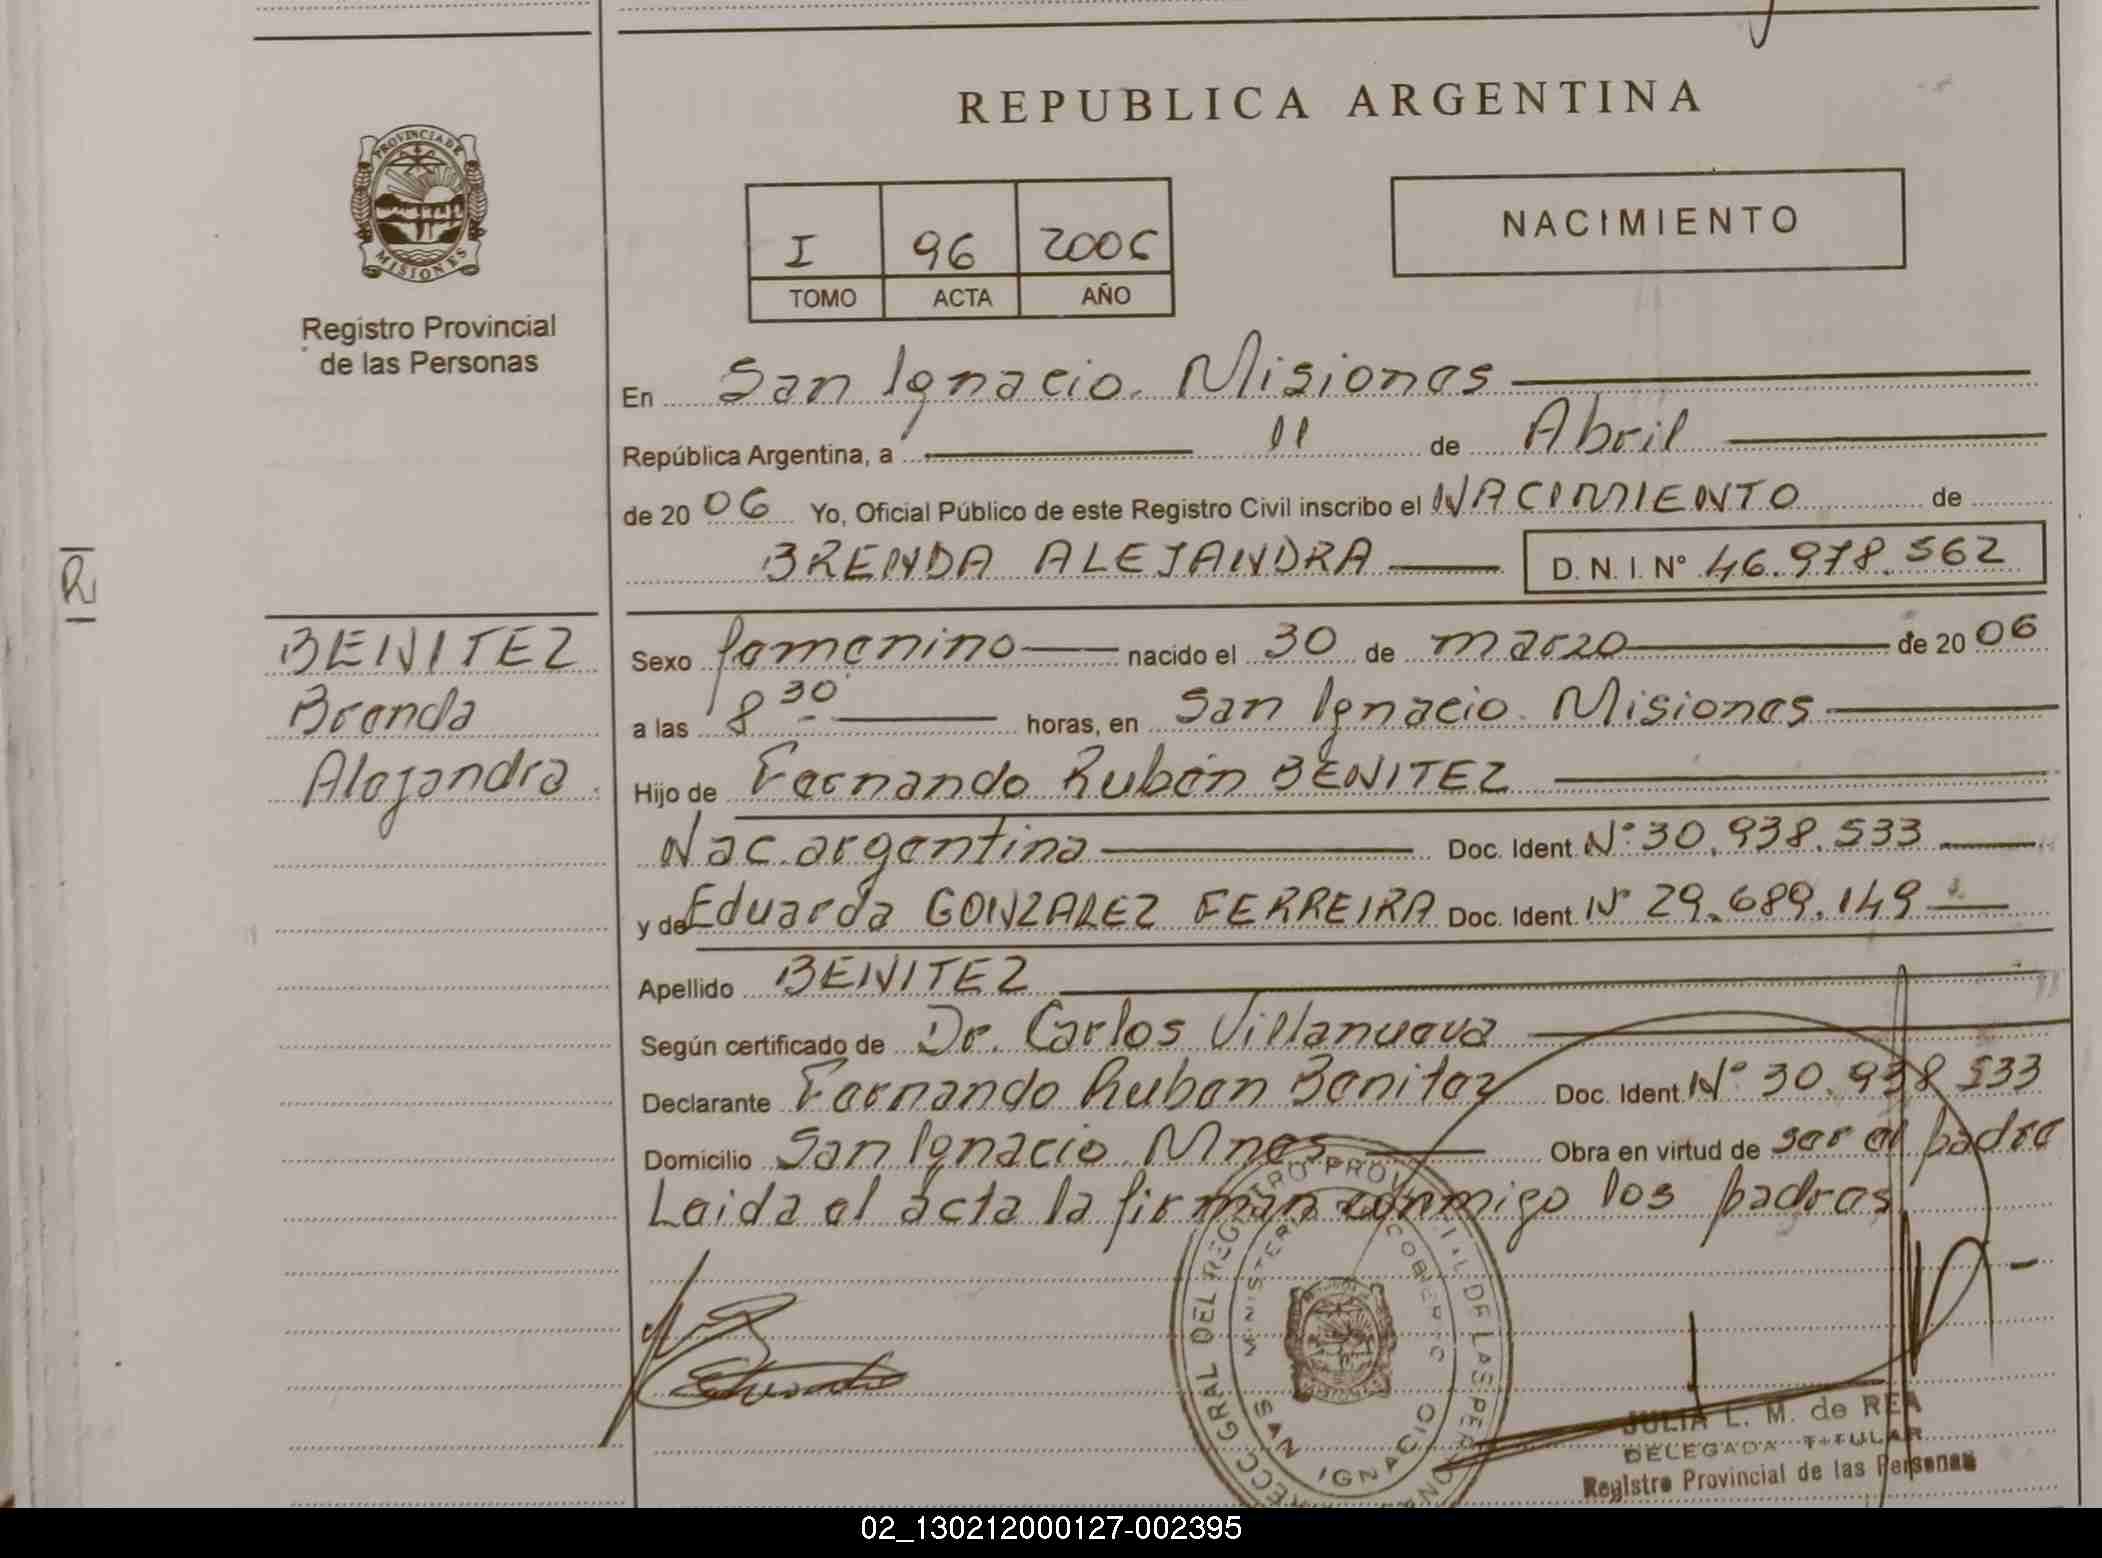 REPUBLICA ARGENTINA
PROVINCIA DE MISIONES
Registro Provincial
de las Personas
NACIMIENTO
I 96 2006
TOMO ACTA AÑO
En San Ignacio. Misiones
República Argentina, a 11 de Abril
de 2006 Yo, Oficial Público de este Registro Civil inscribo el NACIMIENTO de
BRENDA ALEJANDRA D. N. I. Nº 46.978.562
R
BENITEZ
Brenda
Alejandra
Sexo femenino nacido el 30 de marzo de 2006
a las 8 30 horas, en San Ignacio. Misiones
Hijo de Fernando Rubén BENITEZ
Nac. argentina Doc. Ident. Nº 30.938.533
y de Eduarda GONZALEZ FERREIRA Doc. Ident. Nº 29.689.149
Apellido BENITEZ
Según certificado de Dr. Carlos Villanueva
Declarante Fernando Ruben Benitez Doc. Ident. Nº 30.938.533
Domicilio San Ignacio Mnes Obra en virtud de ser el padre
Leida el acta la firman conmigo los padres
GRAL DEL REGISTRO PROVINCIAL DE LAS PERSONAS
MINISTERIO GOBIERNO
SAN IGNACIO
JULIA L. M. de REA
DELEGADA TITULAR
Registro Provincial de las Personas
02_130212000127-002395